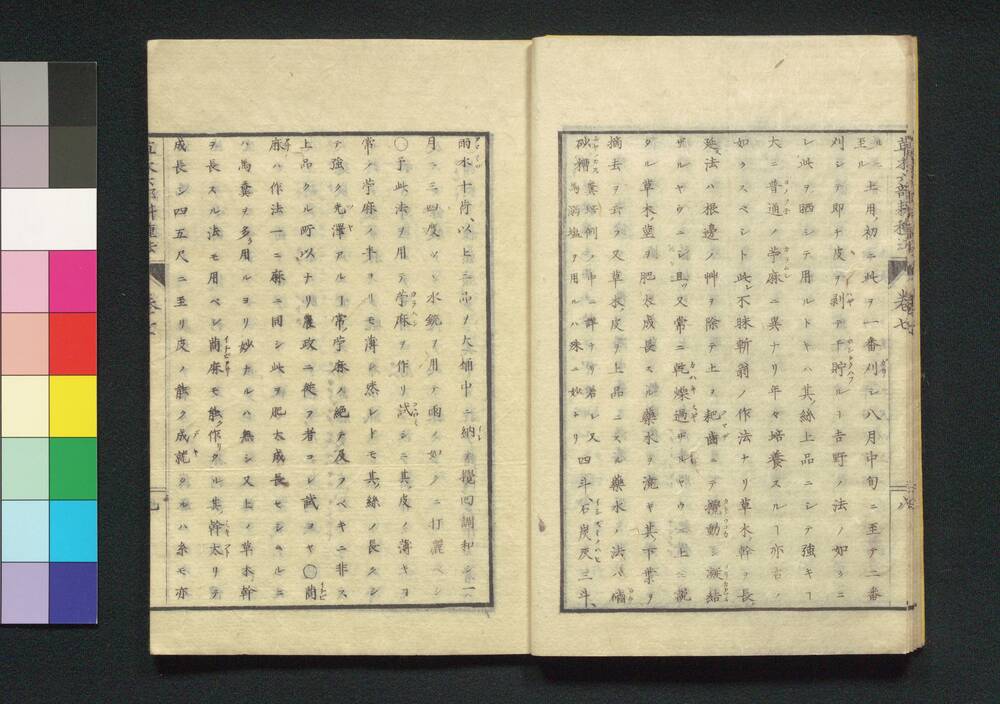 草木六部耕種法 巻七
ルニ土用ノ初ニ此ヲ一番刈シ八月中旬ニ至テ二番
刈シテ即チ皮ヲ剥テ干貯ルヿ吉野ノ法ノ如クニ
シ此ヲ晒シテ用ルトキハ其絲上品ニシテ強キヿ
大ニ普通ノ苧麻ニ異ナリ年々培養スルヿ亦右ノ
如クスベシト此レ不昧軒翁ノ作法ナリ草木幹ヲ長
延法ハ根邊ノ艸ヲ除テ上ヲ耙齒ニテ攪動シ凝結
セルヤウニシ且ツ又常ニ乾燥過ザルヤウニシ上ニ説
タル草木ノ莖ヲ肥大成長スル藥水ヲ澆ギ其下葉ヲ
摘去ヲ又草木ノ皮ヲ上品ニスル藥水ノ法ハ
砂糟 馬溺 塩ヲ用ルハ殊ニ妙ナリ四斗、石炭灰三斗、
雨水十荷、以上三品ヲ大桶中ニ納テ攪回調和シ一
月ニ三四度ヅヽ水銃ヲ用テ雨ノ如クニ打灑ベシ
〇予此法ヲ用テ苧麻ヲ作リ試シニ其皮ノ薄キヿ
常ノ苧麻ノ半ヨリモ薄シ然レドモ其絲ノ長クシ
テ強ク光澤アルヿ常ノ苧麻ノ絶テ及ブベキニ非ズ
上品タル所以ナリ農政ニ從フ者コレ試ヨヤ〇蕳
麻ハ作法一ニ麻ニ同シ此ヲ肥太成長セシムルニ
ハ馬糞ヲ多ク用ルヨリ妙ナルハ無シ又上ノ草木幹
ヲ長スル法モ用ベシ蕳麻モ能ク作リタルハ其幹太リテ
成長シ四五尺ニ至リ皮ノ能ク成就タルハ糸モ亦
巻七
九